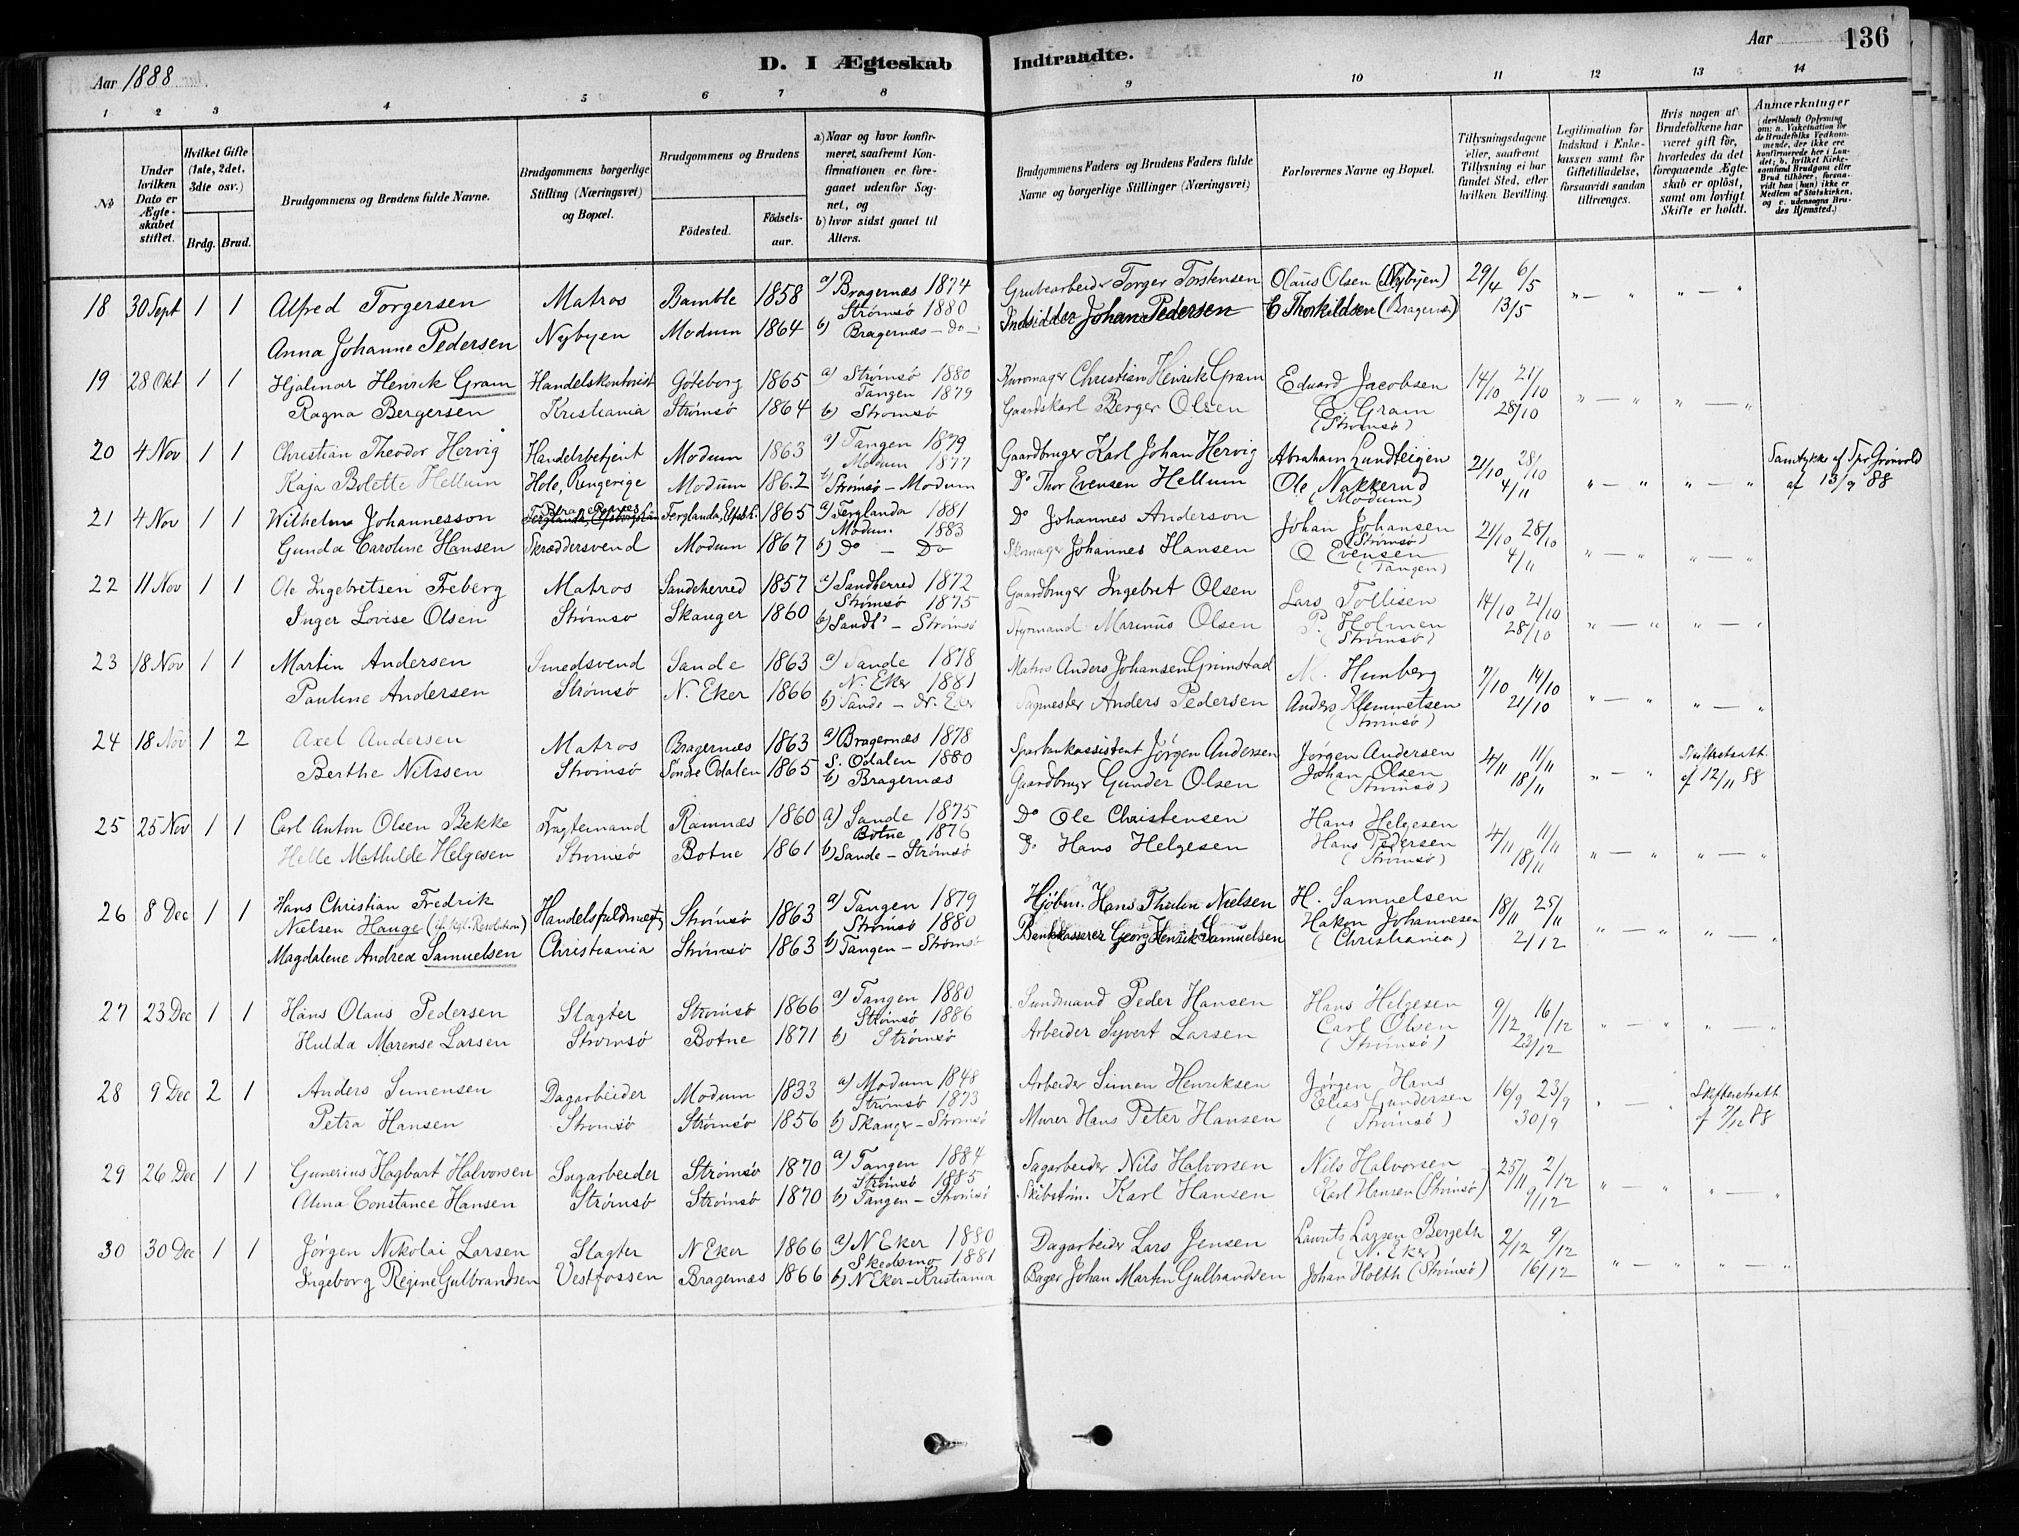 Aar 1888
D. I Ægteskab
Indtraadte.
Aar
136
1 2 3 4 5 6 7 8 9 10 11 12 13 14
№
Under hvilken Dato er Ægteskabet stiftet.
Hvilket Gifte (1ste, 2det, 3dte osv.)
Brdg. Brud.
Brudgommens og Brudens fulde Navne.
Brudgommens borgerlige Stilling (Næringsvei) og Bopæl.
Brudgommens og Brudens
Födested.
Födselsaar.
a) Naar og hvor konfirmeret, saafremt Konfirmationen er foregaaet udenfor Sognet, og
b) hvor sidst gaaet til Alters.
Brudgommens Faders og Brudens Faders fulde Navne og borgerlige Stillinger (Næringsvei)
Forlovernes Navne og Bopæl.
Tillysningsdagene eller, saafremt Tillysning ei har fundet Sted, efter hvilken Bevilling.
Legitimation for Indskud i Enkekassen samt for Giftetilladelse, forsaavidt saadan tiltrænges.
Hvis nogen af Brudefolkene har været gift för, hvorledes da det foregaaende Ægteskab er oplöst, samt om lovligt Skifte er holdt.
Anmærkninger (deriblandt Oplysning om: a. Vakcination for de Brudefolks Vedkommende, der ikke ere konfirmerede her i Landet; b. hvilket Kirkesamfund Brudgom eller Brud tilhörer, forsavidt han (hun) ikke er Medlem af Statskirken, og c. udensogns Brudes Hjemsted.)
18 30 Sept 1 1 Alfred Torgersen Matros Bamble 1858 a) Bragernæs 1874 Grubearbeider Torger Torstensen Olaus Olsen (Nybyen) 29/4 6/5 " — " " — "
Strømsø 1880
Anna Johanne Pedersen Nybyen Modum 1864 b) Bragernæs - Do - Indsidder Johan Pedersen C Thorkildsen (Bragernæs) 13/5
19 28 Okt 1 1 Hjalmar Henrik Gram Handelskontorist Göteborg 1865 a) Strømsø 1880 Kuromager Christian Henrik Gram Eduard Jacobsen 14/10 21/10 " — " " — "
Tangen 1879
Ragna Bergersen Kristiania Strømsø 1864 b) Strømsø Gaardskarl Berger Olsen C. Gram 28/10
(Strømsø)
20 4 Nov 1 1 Christian Theodor Hervig Handelsbetjent Modum 1863 a) Tangen 1879 Gaardbruger Karl Johan Hervig Abraham Lundteigen 21/10 28/10 " — " " — " Samtykke af Spr Grönvold
Modum 1877
Kaja Bolette Hellum Hole, Ringerige Modum 1862 b) Strømsø - Modum Do Thor Evensen Hellum Ole Nakkerud 4/11 af 13/9 88
(Modum)
21 4 Nov 1 1 Wilhelm Johannesson Bragernæs Ferglanda, Elfsb. 1865 a) Ferglanda 1881 Do Johannes Anderson Johan Johansen 21/10 28/10 " — " " — "
Modum 1883 (Strømsø)
Gunda Caroline Hansen Skræddersvend Modum 1867 b) Do - Do Skomager Johannes Hansen O Evensen 4/11
(Tangen)
22 11 Nov 1 1 Ole Ingebretsen Freberg Matros Sandeherred 1857 a) Sandherred 1872 Gaardbruger Ingebret Olsen Lars Tollisen 14/10 21/10 " — " " — "
Strømsø 1875
Inger Lovise Olsen Strømsø Skauger 1860 b) Sandh - Strømsø Styrmand Marinus Olsen P. Holmen 28/10
(Strømsø)
23 18 Nov 1 1 Martin Andersen Smedsvend Sande 1863 a) Sande 1878 Matros Anders Johansen Grimstad M. Humberg 7/10 14/10 " — " " — "
N. Eker 1881
Pauline Andersen Strømsø N. Eker 1866 b) Sande - N. Eker Sagmester Anders Pedersen Anders Klemmetsen 21/10
(Strømsø)
24 18 Nov 1 2 Axel Andersen Matros Bragernæs 1863 a) Bragernæs 1878 Sparbankassistent Jørgen Andersen Jørgen Andersen 4/11 11/11 " — " Skifteratt.
S. Odalen 1880
Berthe Nilssen Strømsø Søndre Odalen 1865 b) Bragernæs Gaardbruger Gunder Olsen Johan Olsen 18/11 af 12/11 88
(Strømsø)
25 25 Nov 1 1 Carl Anton Olsen Bekke Fragtemand Ramnæs 1860 a) Sande 1875 Do Ole Christensen Hans Helgesen 4/11 11/11 " — " " — "
Botne 1876
Helle Mathilde Helgesen Strømsø Botne 1861 b) Sande - Strømsø Do Hans Helgesen Hans Pedersen 18/11
(Strømsø)
26 8 Dec 1 1 Hans Christian Fredrik
Nielsen Hauge (if. Kgl. Resolution) Handelsfuldmægtig Strømsø 1863 a) Tangen 1879 Kjöbm. Hans Thulin Nielsen H. Samuelsen 18/11 25/11 " — " " — "
Strømsø 1880 Hakon Johannesen
Magdalene Andrea Samuelsen Christiania Strømsø 1863 b) Tangen - Strømsø Bankkasserer Georg Henrik Samuelsen (Christiania) 2/12
27 23 Dec 1 1 Hans Olaus Pedersen Slagter Strømsø 1866 a) Tangen 1880 Sundmand Peder Hansen Hans Helgesen 9/12 16/12 " — " " "
Strømsø 1886
Hulda Marense Larsen Strømsø Botne 1871 b) Strømsø Arbeider Syvert Larsen Carl Olsen 23/12
(Strømsø)
28 9 Dec 2 1 Anders Simensen Dagarbeider Modum 1833 a) Modum 1848 Arbeider Simen Henriksen Jørgen Hans 16/9 23/9 " — " Skifteratt
Strømsø 1873 Elias Gundersen
Petra Hansen Strømsø Strømsø 1856 b) Skauger - Strømsø Murer Hans Peter Hansen (Strømsø) 30/9 af 7/12 88
29 26 Dec 1 1 Gunerius Hagbart Halvorsen Sagarbeider Strømsø 1870 a) Tangen 1884 Sagarbeider Nils Halvorsen Nils Halvorsen 25/11 2/12 " — " " — "
Strømsø 1885
Alma Constance Hansen Strømsø Strømsø 1870 b) Tangen - Strømsø Skibstøm. Karl Hansen Karl Hansen (Strømsø) 9/12
30 30 Dec 1 1 Jørgen Nikolai Larsen Slagter N Eker 1866 a) N Eker 1880 Dagarbeider Lars Jensen Laurits Larsen Bergeth 2/12 9/12 " — " " — "
Skedsmo 1881 (N. Eker)
Ingeborg Regine Gulbrandsen Vestfossen Bragernæs 1866 b) N Eker - Kristiania Bager Johan Martin Gulbrandsen Johan Holth (Strømsø) 16/12